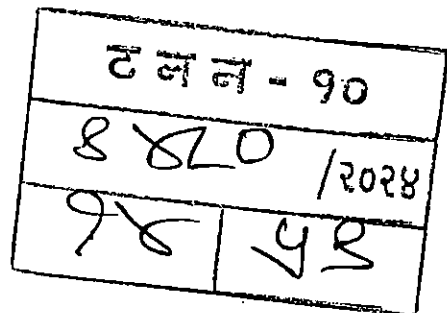 टलन - १०
४४८० /२०२४
१४ ५९